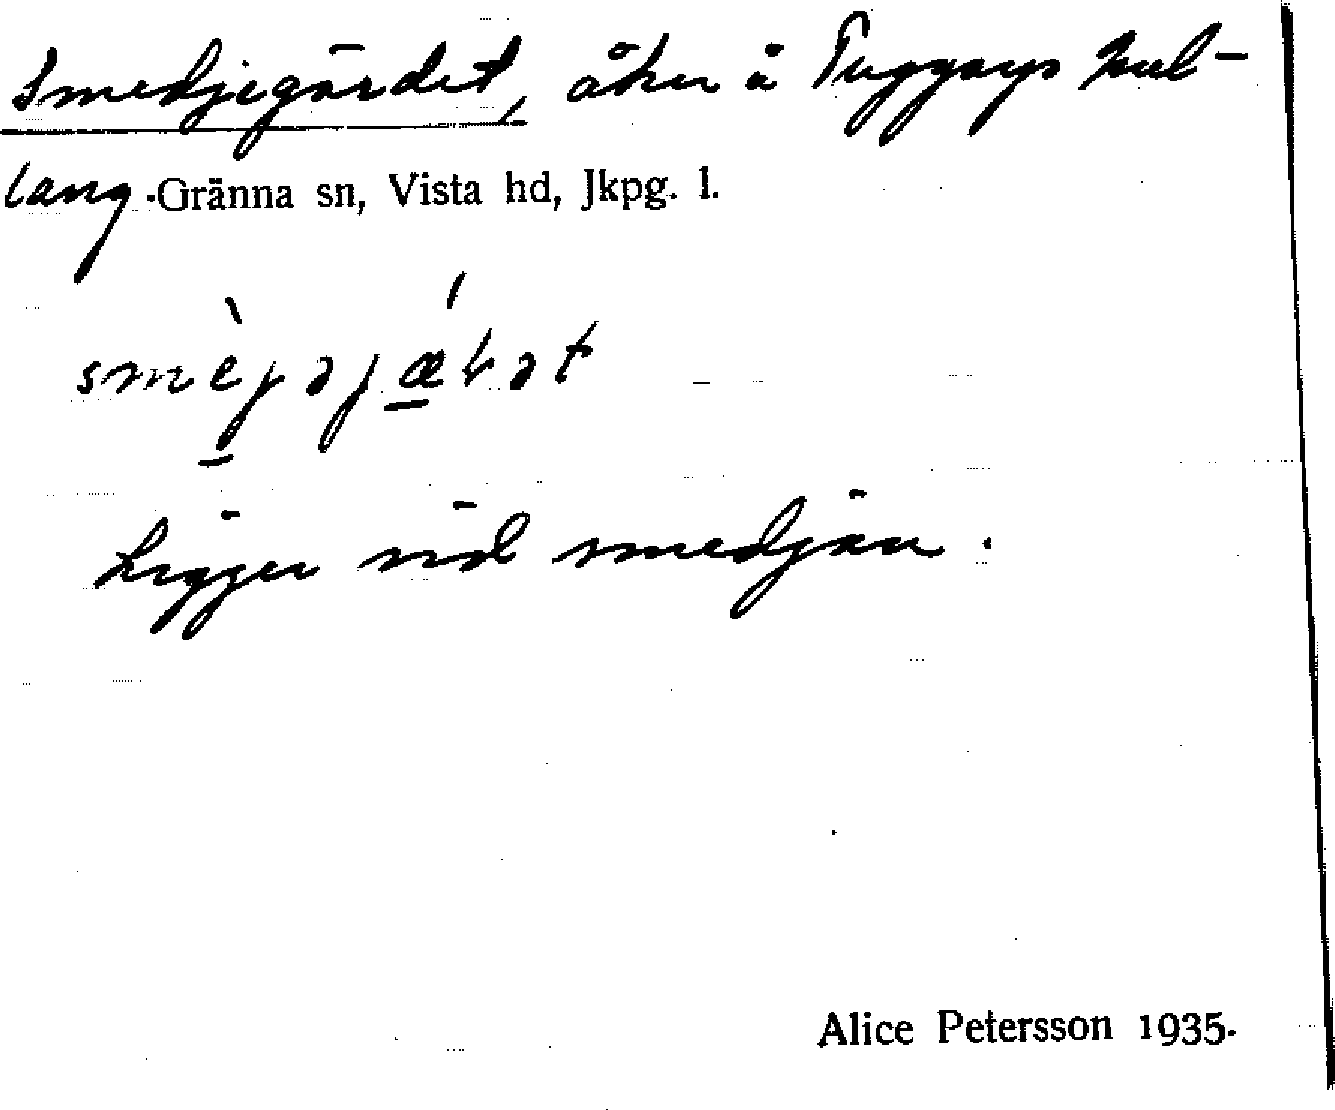 Smedjegärdet, åker å Tuggarps kul-
lang Gränna sn, Vista hd, Jkpg. l.
Ligger vid smedjan.
Alice Petersson 1935.